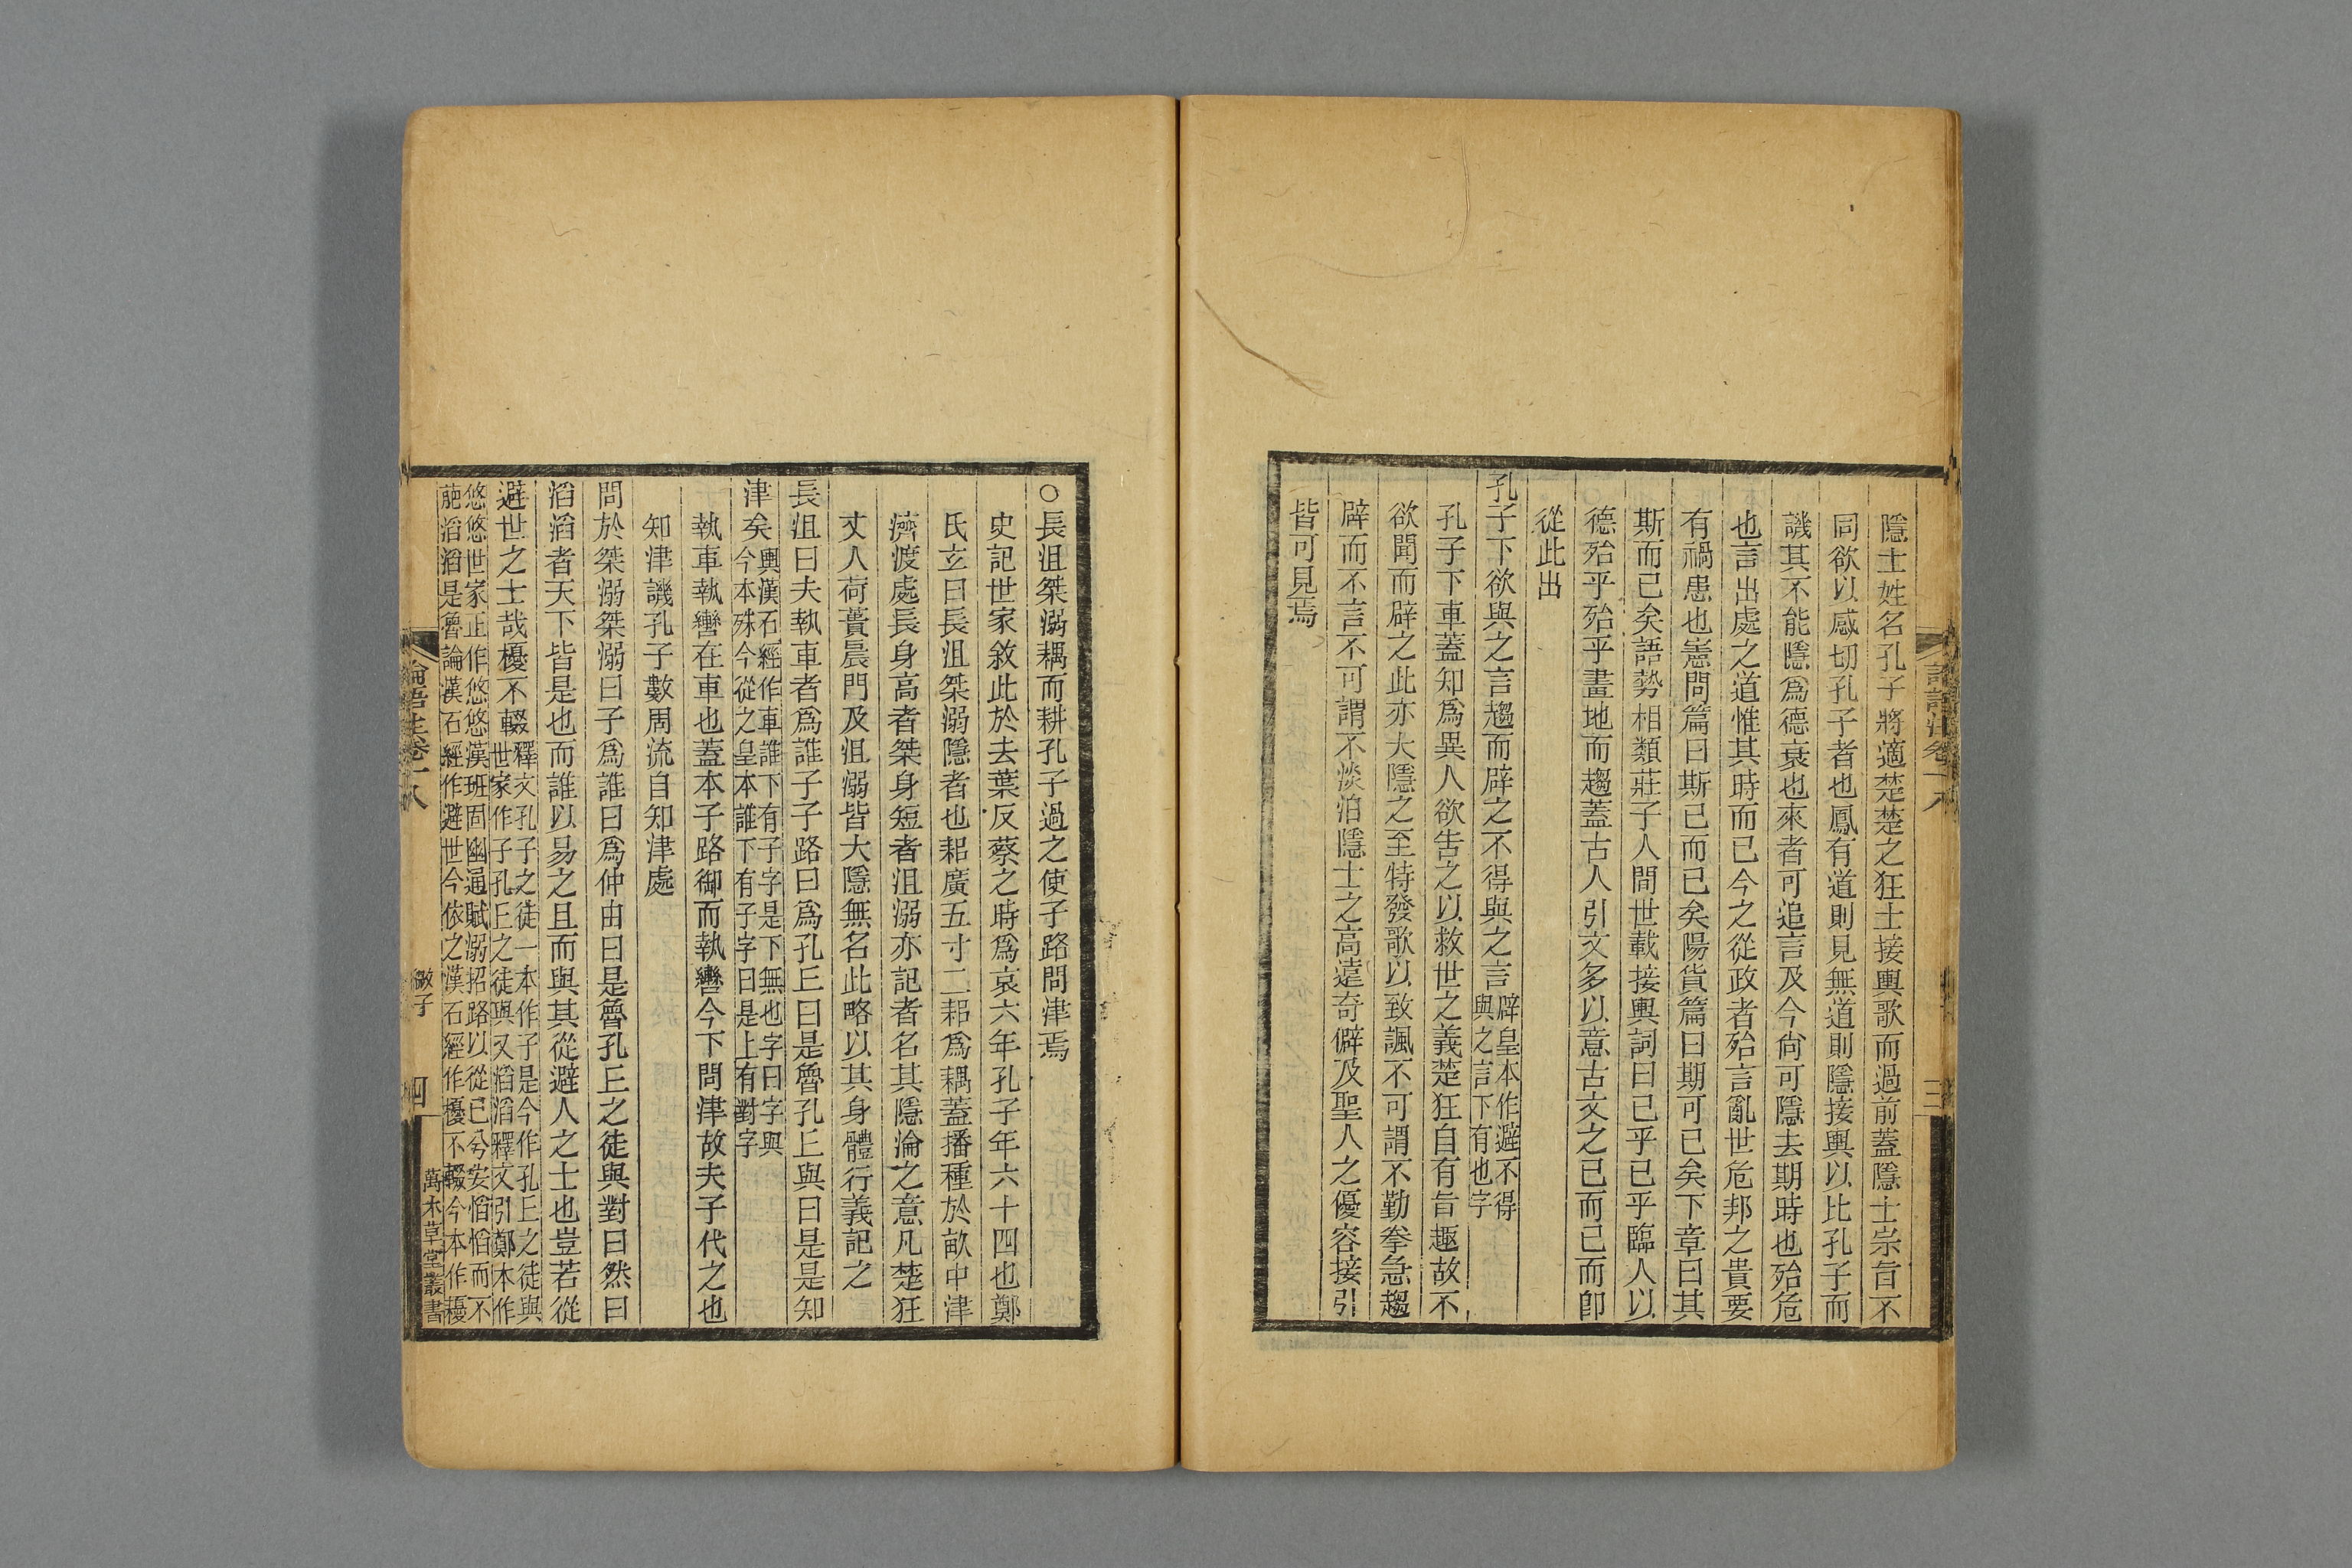 隱士姓名孔子將適楚楚之狂士接輿歌而過前蓋隱士宗旨不
同欲以感切孔子者也鳳有道則見無道則隱接輿以比孔子而
譏其不能隱爲德衰也來者可追言及今尙可隱去期時也殆危
也言出處之道惟其時而已今之從政者殆言亂世危邦之貴要
有禍患也憲問篇曰斯已而已矣陽貨篇曰期可已矣下章曰其
斯而已矣語勢相類莊子人間世載接輿詞曰已乎已乎臨人以
德殆乎殆乎畫地而趨蓋古人引文多以意古文之已而已而卽
從此出
孔子下欲與之言趨而辟之不得與之言辟皇本作避不得
與之言下有也字
孔子下車蓋知爲異人欲告之以救世之義楚狂自有旨趣故不
欲聞而辟之此亦大隱之至特發歌以致諷不可謂不勤拳急趨
辟而不言不可謂不淡泊隱士之高遠奇僻及聖人之優容接引
皆可見焉
三
○長沮桀溺耦而耕孔子過之使子路問津焉
史記世家敘此於去葉反蔡之時爲哀六年孔子年六十四也鄭
氏玄曰長沮桀溺隱者也耜廣五寸二耜爲耦蓋播種於畝中津
濟渡處長身高者桀身短者沮溺亦記者名其隱淪之意凡楚狂
丈人荷蕢晨門及沮溺皆大隱無名此略以其身體行義記之
長沮曰夫執車者爲誰子子路曰爲孔丘曰是魯孔丘與曰是是知
津矣輿漢石經作車誰下有子字是下無也字曰字與
今本殊今從之皇本誰下有子字曰是上有對字
執車執轡在車也蓋本子路御而執轡今下問津故夫子代之也
知津譏孔子數周流自知津處
問於桀溺桀溺曰子爲誰曰爲仲由曰是魯孔丘之徒與對曰然曰
滔滔者天下皆是也而誰以易之且而與其從避人之士也豈若從
避世之士哉櫌不輟釋文孔子之徒一本作子是今作孔丘之徒與
世家作子孔丘之徒與又滔滔釋文引鄭本作
悠悠世家正作悠悠漢班固幽通賦溺招路以從已兮安慆慆而不
萉滔滔是魯論漢石經作避世今依之漢石經作櫌不輟今本作耰
論語注卷十八
微子
四
萬木草堂叢書